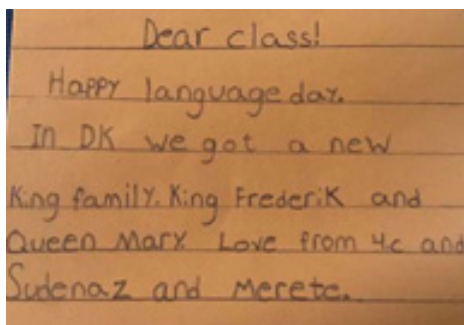 Dear class!
Happy language day.
In DK we got a new
King family. King Frederik and
Queen Mary. Love from 4.c and
Sudenaz and Merete.